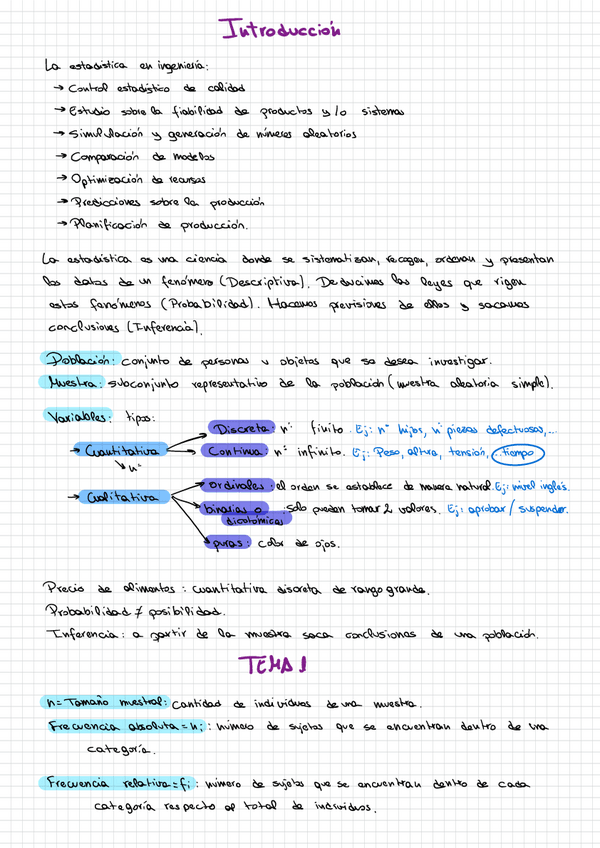 Introducción
La estadística en ingeniería:
→ Control estadístico de calidad
→ Estudio sobre la fiabilidad de productos y/o sistemas
→ Simulación y generación de números aleatorios
→ Comparación de modelos
→ Optimización de recursos
→ Predicciones sobre la producción
→ Planificación de producción.
La estadística es una ciencia donde se sistematizan, recogen, ordenan y presentan
los datos de un fenómeno (Descriptiva). Deducimos las leyes que rigen
estos fenómenos (Probabilidad). Hacemos previsiones de ellos y sacamos
conclusiones (Inferencia).
Población: conjunto de personas u objetos que se desea investigar.
Muestra: subconjunto representativo de la población (muestra aleatoria simple).
Variables: tipos:
Discreta: nº finito. Ej: nº hijos, nº piezas defectuosas,...
→ Cuantitativa
Continua nº infinito. Ej: Peso, altura, tensión, ...tiempo
nº
→ Cualitativa
ordinales: el orden se establece de manera natural. Ej: nivel inglés.
binarias o dicotómicas: solo pueden tomar 2 valores. Ej: aprobar/suspender.
puras: color de ojos.
Precio de alimentos: cuantitativa discreta de rango grande.
Probabilidad ≠ posibilidad.
Inferencia: a partir de la muestra saca conclusiones de una población.
TEMA 1
n = Tamaño muestral: cantidad de individuos de una muestra.
Frecuencia absoluta = ni: número de sujetos que se encuentran dentro de una
categoría.
Frecuencia relativa = fi: número de sujetos que se encuentran dentro de cada
categoría respecto al total de individuos.